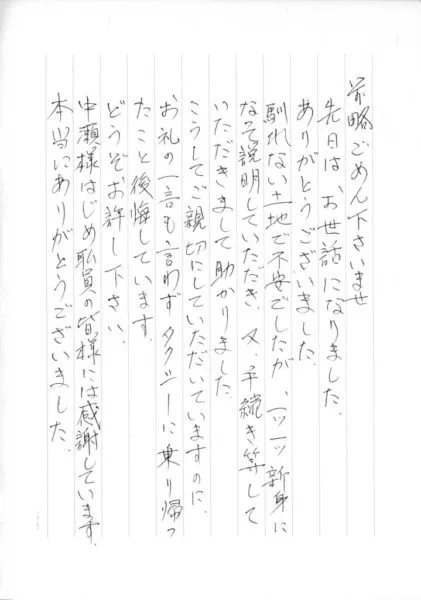 前略ごめん下さいませ
先日は、お世話になりました.
ありがとうございました.
馴れない土地で不安でしたが、一ツ一ツ新身に
なって説明していただき、又、手続き等して
いただきまして助かりました.
こうしてご親切にしていただいていますのに.
お礼の一言も言わずタクシーに乗り帰っ
たこと後悔しています.
どうぞお許し下さい.
中瀬様はじめ職員の皆様には感謝しています.
本当にありがとうございました.